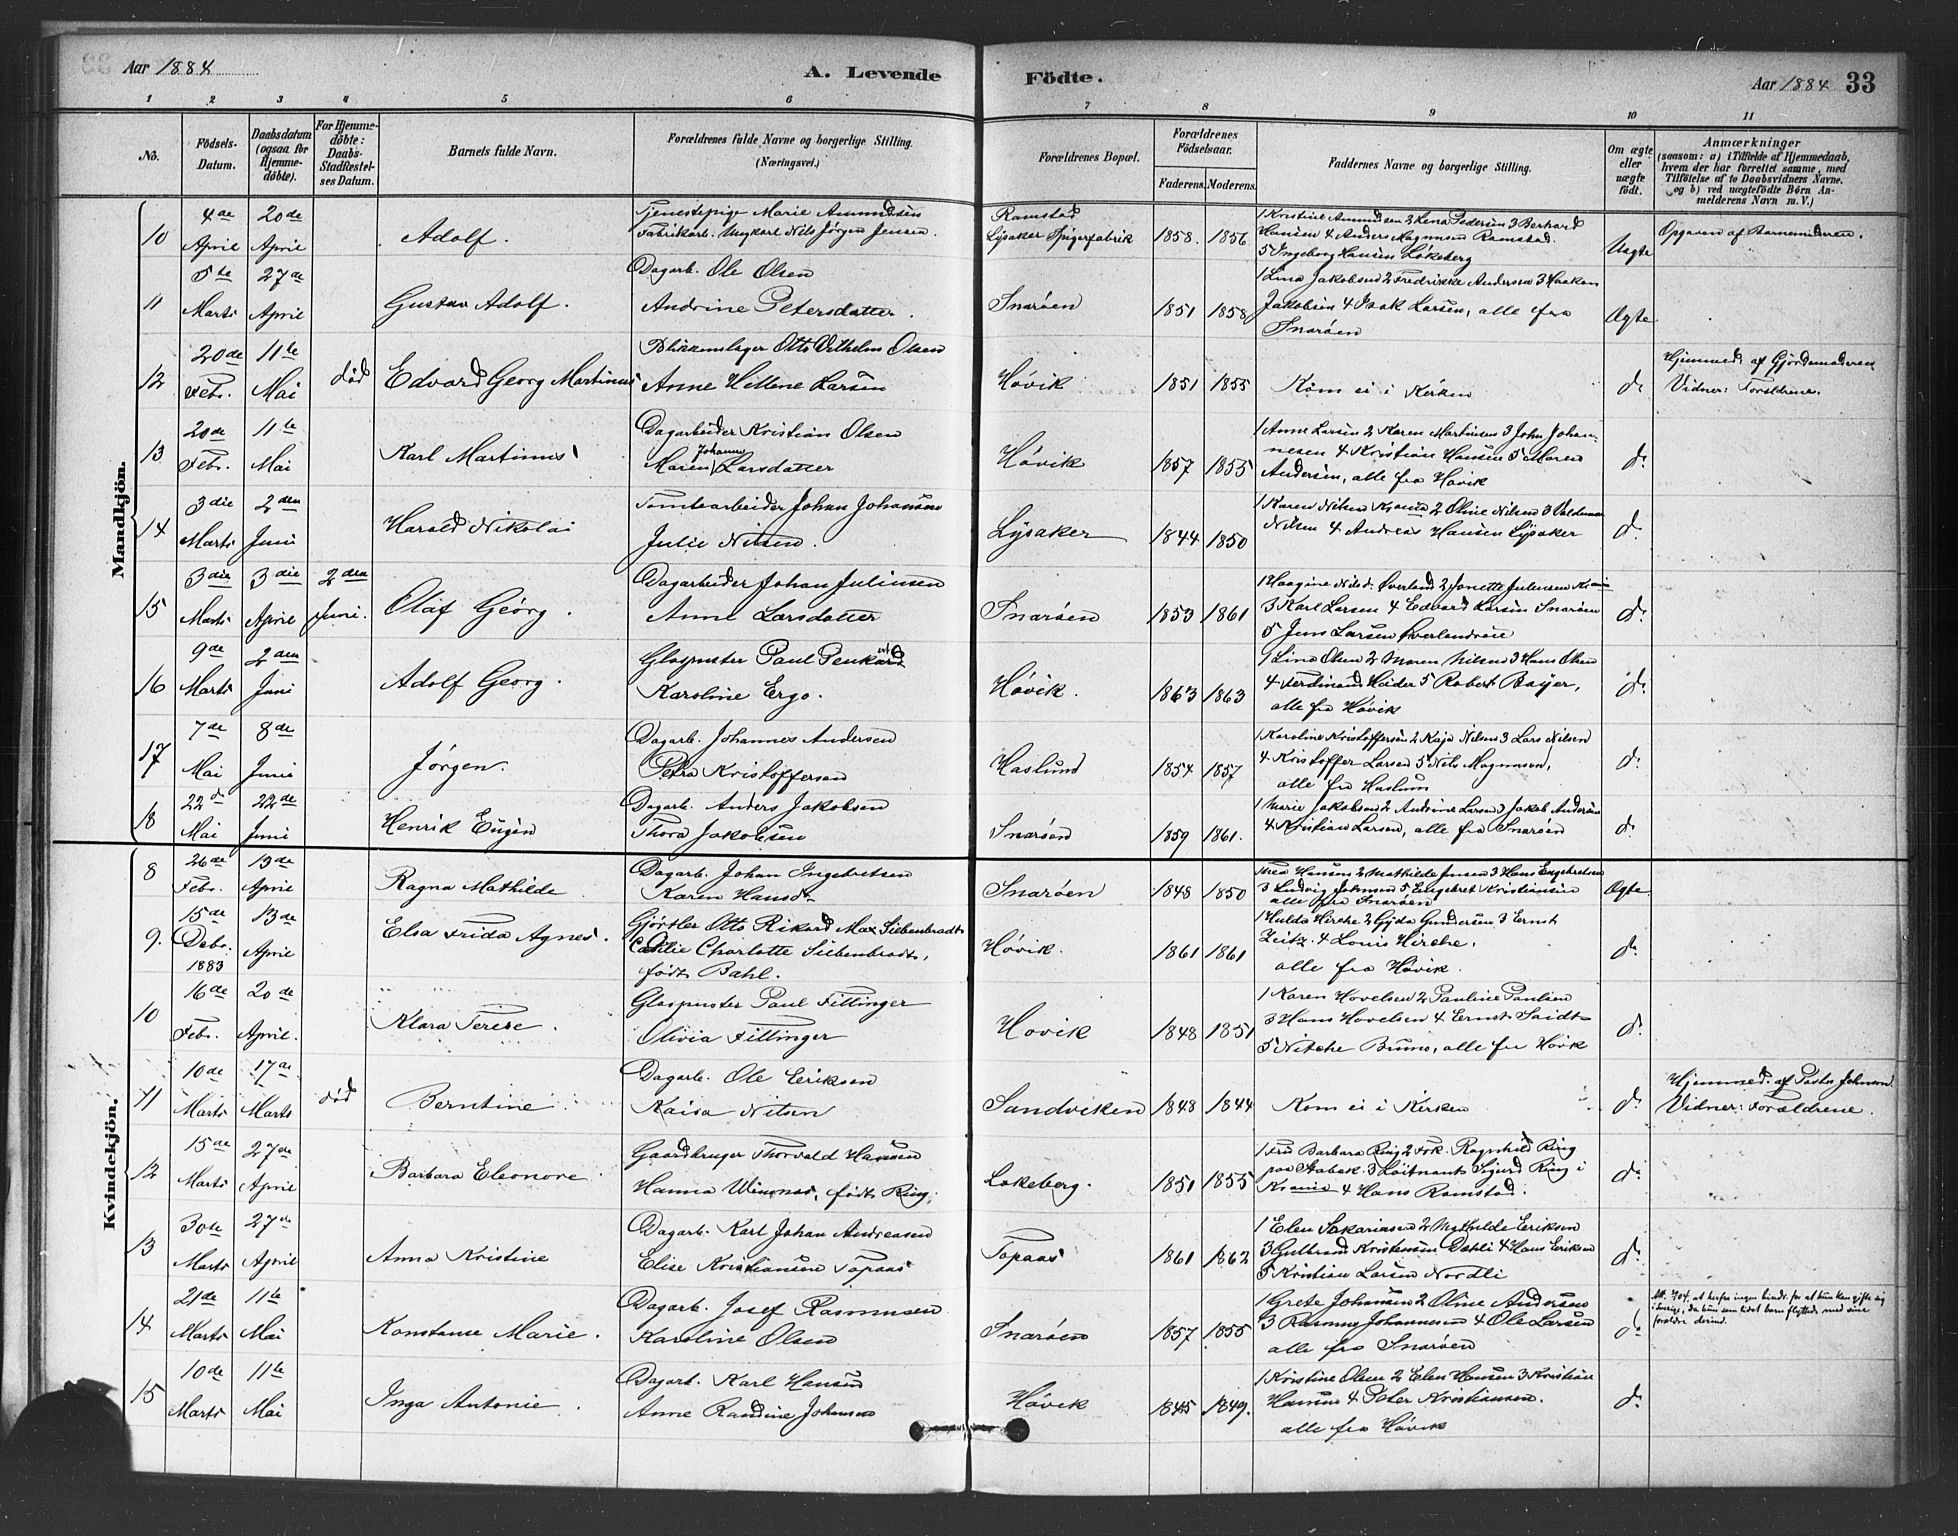 Aar 1884
A. Levende
Födte.
Aar 1884 33
1 2 3 4 5 6 7 8 9 10 11
No.
Födsels-Datum.
Daabsdatum (ogsaa for Hjemme-döbte).
For Hjemme-döbte: Daabs-Stadfæstel-ses Datum.
Barnets fulde Navn.
Forældrenes fulde Navne og borgerlige Stilling. (Næringsvei.)
Forældrenes Bopæl.
Forældrenes Födselsaar.
Faderens. Moderens.
Faddernes Navne og borgerlige Stilling.
Om ægte eller uægte födt.
Anmærkninger
(saasom: a) i Tilfælde af Hjemmedaab, hvem der har forrettet samme, med Tilföielse af to Daabsvidners Navne. og b) ved uægtefödte Börn An-melderens Navn m. V.)
Mandkjön.
10 4de April 20de April Adolf.
Tjenestepige Marie Amundsen
Fabrikarb. Ungkarl Nils Jørgen Jensen.
Ramstad
Lysaker Spigerfabrik 1858. 1856
1 Kristine Amundsen 2 Lena Pedersen 3 Berhard
Hansen 4 Anders Magnusen Ramstad.
5 Ingeborg Hansen Løkeberg
Uægte
Opgaven af Barnemoderen.
11 5te Marts 27de April Gustav Adolf.
Dagarb. Ole Olsen
Andrine Petersdatter.
Snarøen 1851 1858
1 Lina Jakobsen 2 Fredrikke Andersen 3 Haaken
Jakobsen 4 Isak Larsen, alle fra
Snarøen
Ægte
12 20de Febr. 11te Mai død Edvard Georg Martinus
Blikkenslager Otto Vilhelm Olsen
Anne Hellene Larsen
Høvik 1851 1855
Kom ei i Kirken
do
Hjemmed. af Gjordemoderen
Vidner: Forældrene.
13 20de Febr. 11te Mai Karl Martinus
Dagarbeider Kristian Olsen
Maren Johanne Larsdatter
Høvik 1857 1855
1 Anne Larsen 2 Karen Martinsen 3 John Johan-
nesen 4 Kristian Hansen 5 Maren
Andersen, alle fra Høvik
do
14 3die Marts 2den Juni Harald Nikolai
Tomtearbeider Johan Johansen
Julie Nilsen.
Lysaker 1844 1850
1 Karen Nilsen Krania 2 Oline Nilsen 3 Valdemar
Nilsen 4 Andreas Hansen Lysaker
do
15 3die Marts 3die April 2den Juni. Olaf Georg.
Dagarbeider Johan Juliusen
Anne Larsdatter
Snarøen 1853 1861
1 Haagine Nilsd. Øverland 2 Janette Juliussen Krania
3 Karl Larsen 4 Edvard Larsen Snarøen
5 Jens Larsen Øverlandseie
do
16 9de Marts 2den Juni Adolf Georg.
Glaspuster Paul
Karoline Ergo.
Høvik. 1863 1863
1 Lina Olsen 2 Maren Nilsen 3 Hans Olsen
4 Ferdinand Heider 5 Robert Baijer,
alle fra Høvik
do
17 7de Mai 8de Juni Jørgen.
Dagarb. Johannes Andersen
Petra Kristoffersen
Haslund 1854 1857
1 Karoline Kristoffersen 2 Kaja Nilsen 3 Lars Nilsen
4 Kristoffer Larsen 5 Nils Magnusen,
alle fra Haslum
do
18 22de Mai 22de Juni Henrik Eugen
Dagarb. Anders Jakobsen
Thora Jakobsen
Snarøen 1859 1861.
1 Marie Jakobsen 2 Andrine Larsen 3 Jakob Andersen
4 Kristian Larsen, alle fra Snarøen
do
Kvindekjön.
8 26de Febr. 13de April Ragna Mathilde
Dagarb. Johan Ingebretsen
Karen Hansdt.
Snarøen 1848 1850
Hansen 2 Mathilde Jensen 3 Hans Engebretsen
3 Ludvig Johnsen 5 Engebret Kristiansen
alle fra Snarøen
Ægte
9. 15de Debr. 1883 13de April Elsa Frida Agnes.
Gjørtler Otto Rikard Max Siebenbradt
Cæcilie Charlotte Siebenbradt,
født Bahl.
Høvik. 1861 1861
1 Hulda Hirche 2 Gyda Gundersen 3 Ernst
Zeitz. 4 Louis Hirche.
alle fra Høvik.
do
10 16de Febr. 20de April. Klara Terese.
Glaspuster Paul Fillinger
Olivia Fillinger
Høvik 1848 1851
1 Karen Hovelsen 2 Pauline Paulsen
3 Hans Hovelsen 4 Ernst Saidt
5 Nitche Bruno, alle fra Høvik
do
11 10de Marts 17de Marts død Berntine
Dagarb. Ole Eriksen
Kaisa Nilsen
Sandviken 1848 1844
Kom ei i Kirken
do
Hjemmed. af Pastor Johnson
Vidner: Forældrene.
12 15de Marts 27de April Barbara Eleonore.
Gaardbruger Thorvald Hansen
Hanna Winnas, født Ring.
Løkeberg. 1851 1855
1 Fru Barbara Ring 2 Frk. Ragnhild Ring
paa Stabek. 3 Løitnant Sigurd Ring i
Krania 4 Hans Ramstad.
do
13 30te Marts 27de April Anna Kristine
Dagarb. Karl Johan Andreasen
Elise Kristiansen Topaas
Topaas 1861 1862
1 Elen Sakariasen 2 Mathilde Eriksen
3 Gulbrand Kristensen Dæhli 4 Hans Eriksen
5 Kristian Larsen Nordli
do
14 21de Marts 11te Mai Konstanse Marie.
Dagarb. Josef Rasmussen
Karoline Olsen
Snarøen 1857 1855
1 Grete Johansen 2 Oline Andersen
3 Rasmus Johannesen 4 Ole Larsen
alle fra Snarøen
do
Att. 7/04. at herfra ingen hindr. for at hun kan gifte sig
i Sverige, da hun som lidet barn flyttede med sine
forældre derind.
15 10de Marts 11te Mai Inga Antonie.
Dagarb. Karl Hansen
Anne Randine Johnsen
Høvik 1845 1849.
1 Kristine Olsen 2 Elen Hansen 3 Kristian
Hansen 4 Peter Kristiansen.
alle fra Høvik
do